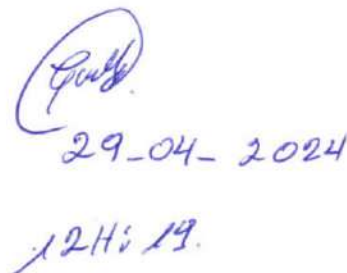 29-04-2024
12H: 19.